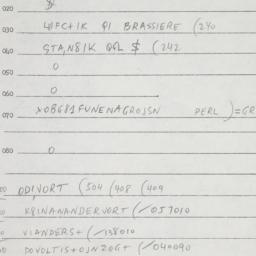 020 $
030 4IFC+IK QI BRASSIERE (240
040 STA,N8IK QGL $ (242
050 0
060 0
070 XOBG81FUNENAGROJSN PERL )=GR
080 0
ODIVORT (504 (408 (409
K8INANANDERVORT (/057010
VIANDERS+ (/138010
DOVOLTIS+OJNZOG+ (/040090